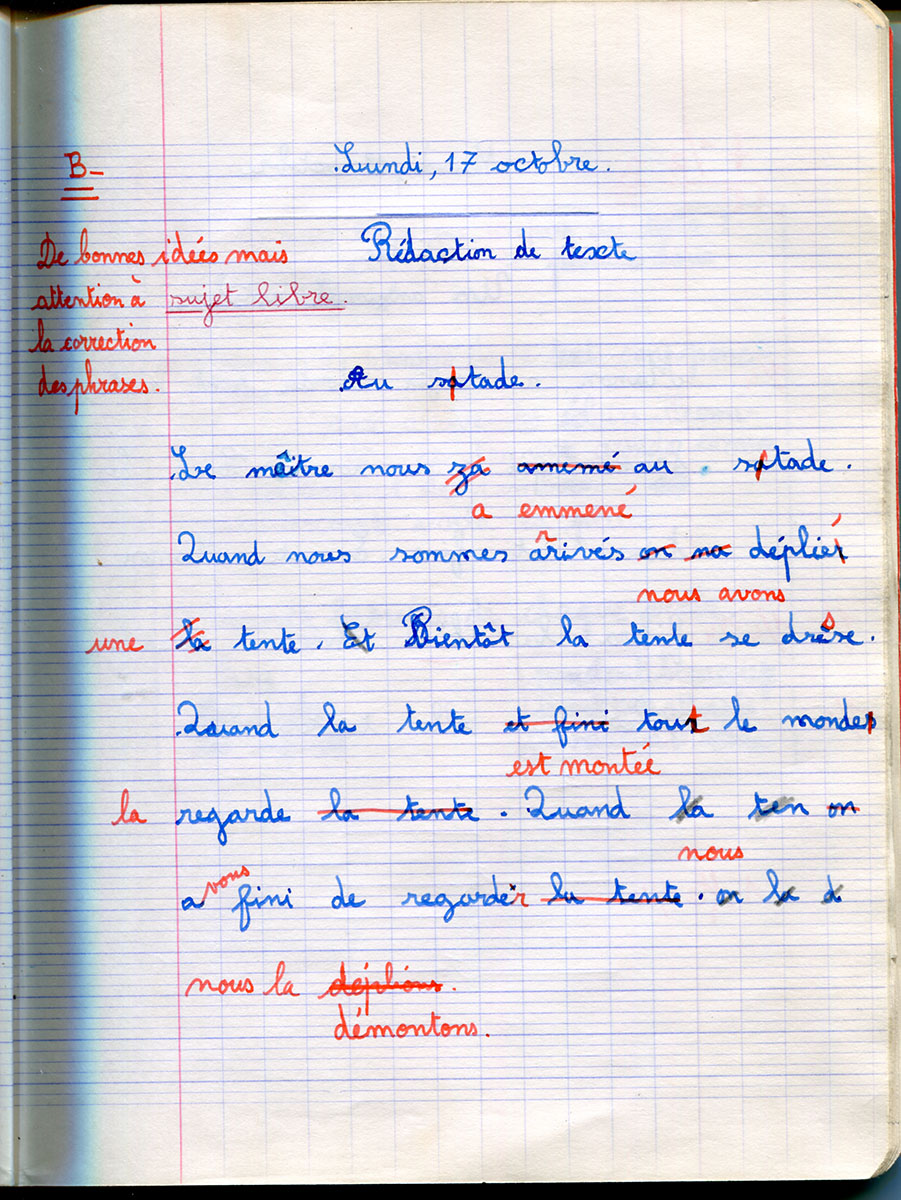 B-
Lundi, 17 octobre.
De bonnes idées mais
attention à
la correction
des phrases.
Rédaction de texte
sujet libre.
Au stade.
Le maître nous za amemé au stade.
a emmené
Quand nous sommes arivés on na déplier
nous avons
une la tente. Et Bientôt la tente se drèse.
Quand la tente et fini tout le monde
est montée
la regarde la tente. Quand la ten on
nous
a vons fini de regarder la tente. on la d
nous la déplions.
démontons.